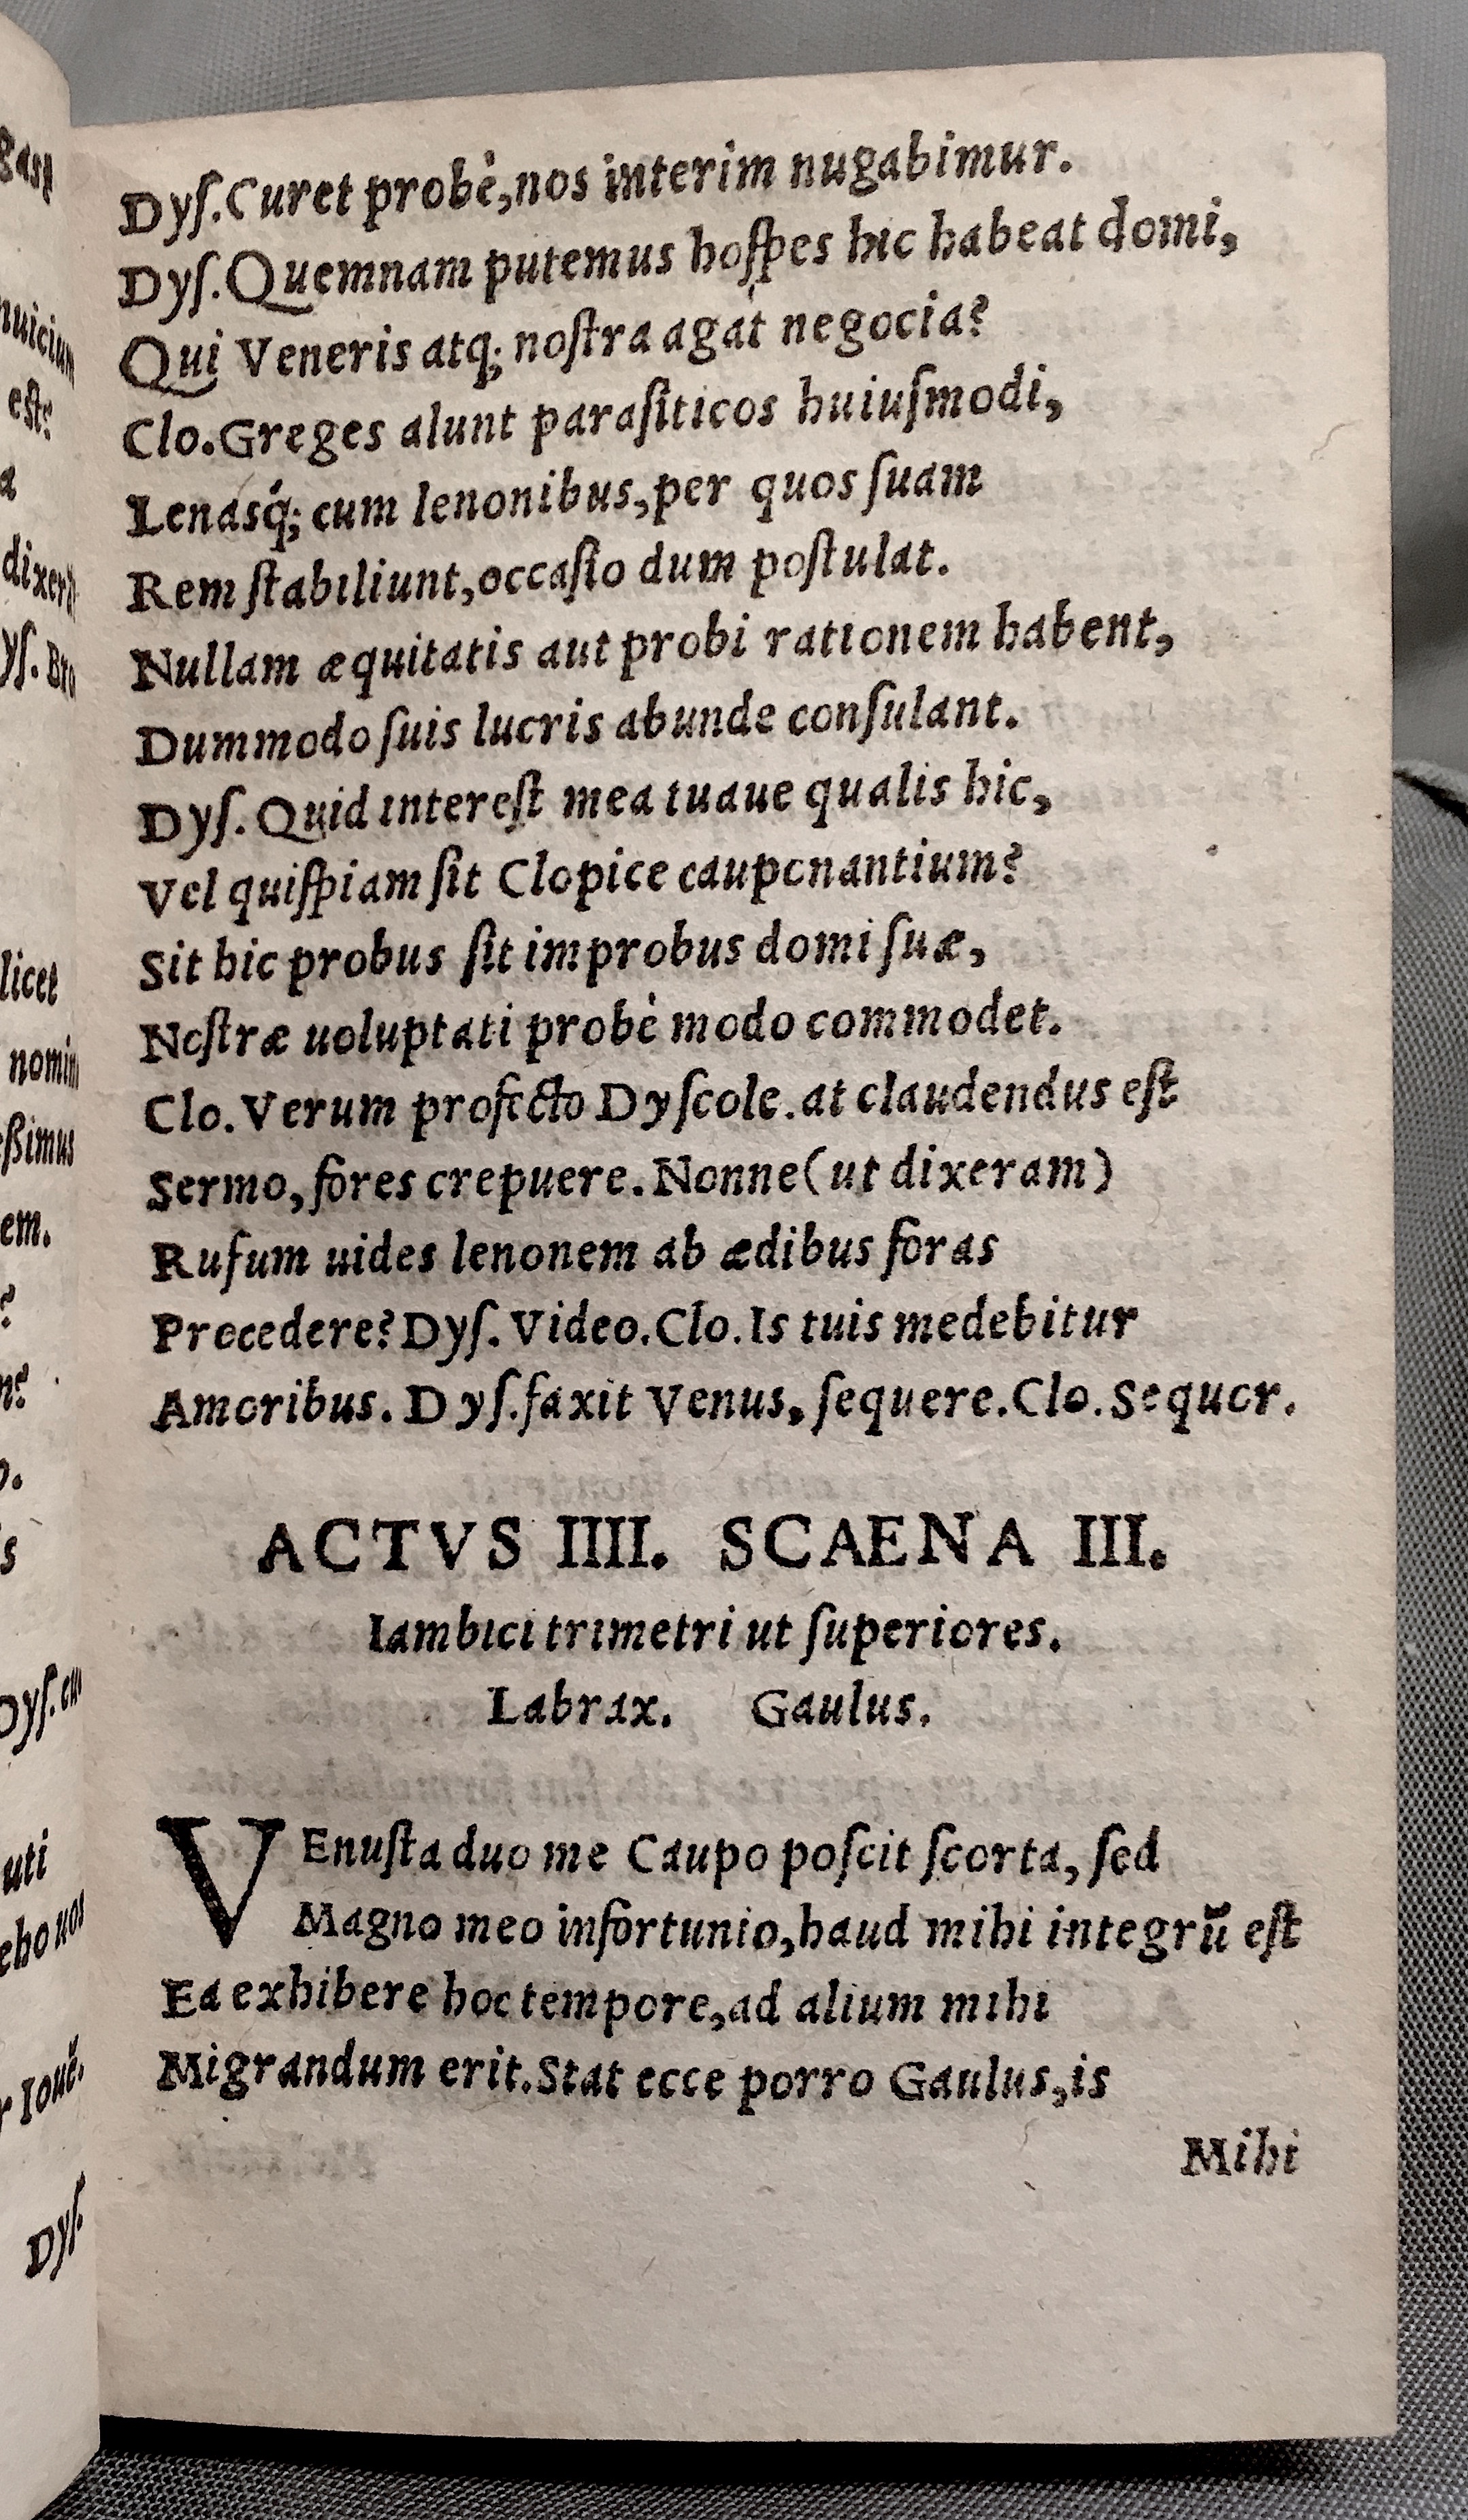 Dyſ. Curet probè, nos interim nugabimur.
Dyſ. Quemnam putemus hoſpes hic habeat domi,
Qui Veneris atq; noſtra agat negocia?
Clo. Greges alunt paraſiticos huiuſmodi,
Lenasq́; cum lenonibus, per quos ſuam
Rem ſtabiliunt, occaſio dum poſtulat.
Nullam æquitatis aut probi rationem habent,
Dummodo ſuis lucris abunde conſulant.
Dyſ. Quid intereſt mea tuaue qualis hic,
Vel quiſpiam ſit Clopice cauponantium?
Sit hic probus ſit improbus domi ſuæ,
Noſtræ uoluptati probè modo commodet.
Clo. Verum profecto Dyſcole. at claudendus eſt
Sermo, fores crepuere. Nonne (ut dixeram)
Rufum uides lenonem ab ædibus foras
Procedere? Dyſ. Video. Clo. Is tuis medebitur
Amoribus. Dyſ. faxit Venus, ſequere. Clo. Sequor.
ACTVS IIII. SCAENA III.
Iambici trimetri ut ſuperiores.
Labrax. Gaulus.
VEnuſta duo me Caupo poſcit ſcorta, ſed
Magno meo infortunio, haud mihi integrū eſt
Ea exhibere hoc tempore, ad alium mihi
Migrandum erit. Stat ecce porro Gaulus, is
Mihi